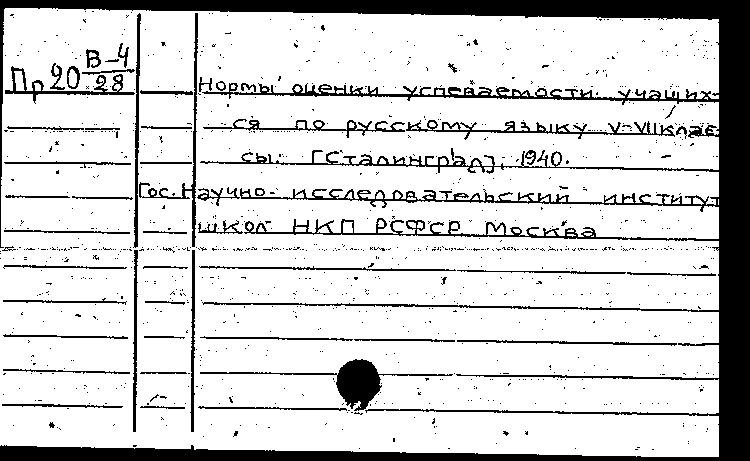 Пр 20 В-4/28
Нормы оценки успеваемости учащих-
ся по русскому языку V-VII клас-
сы. [Сталинград], 1940.
Гос. Научно-исследовательский институт
школ НКП РСФСР Москва